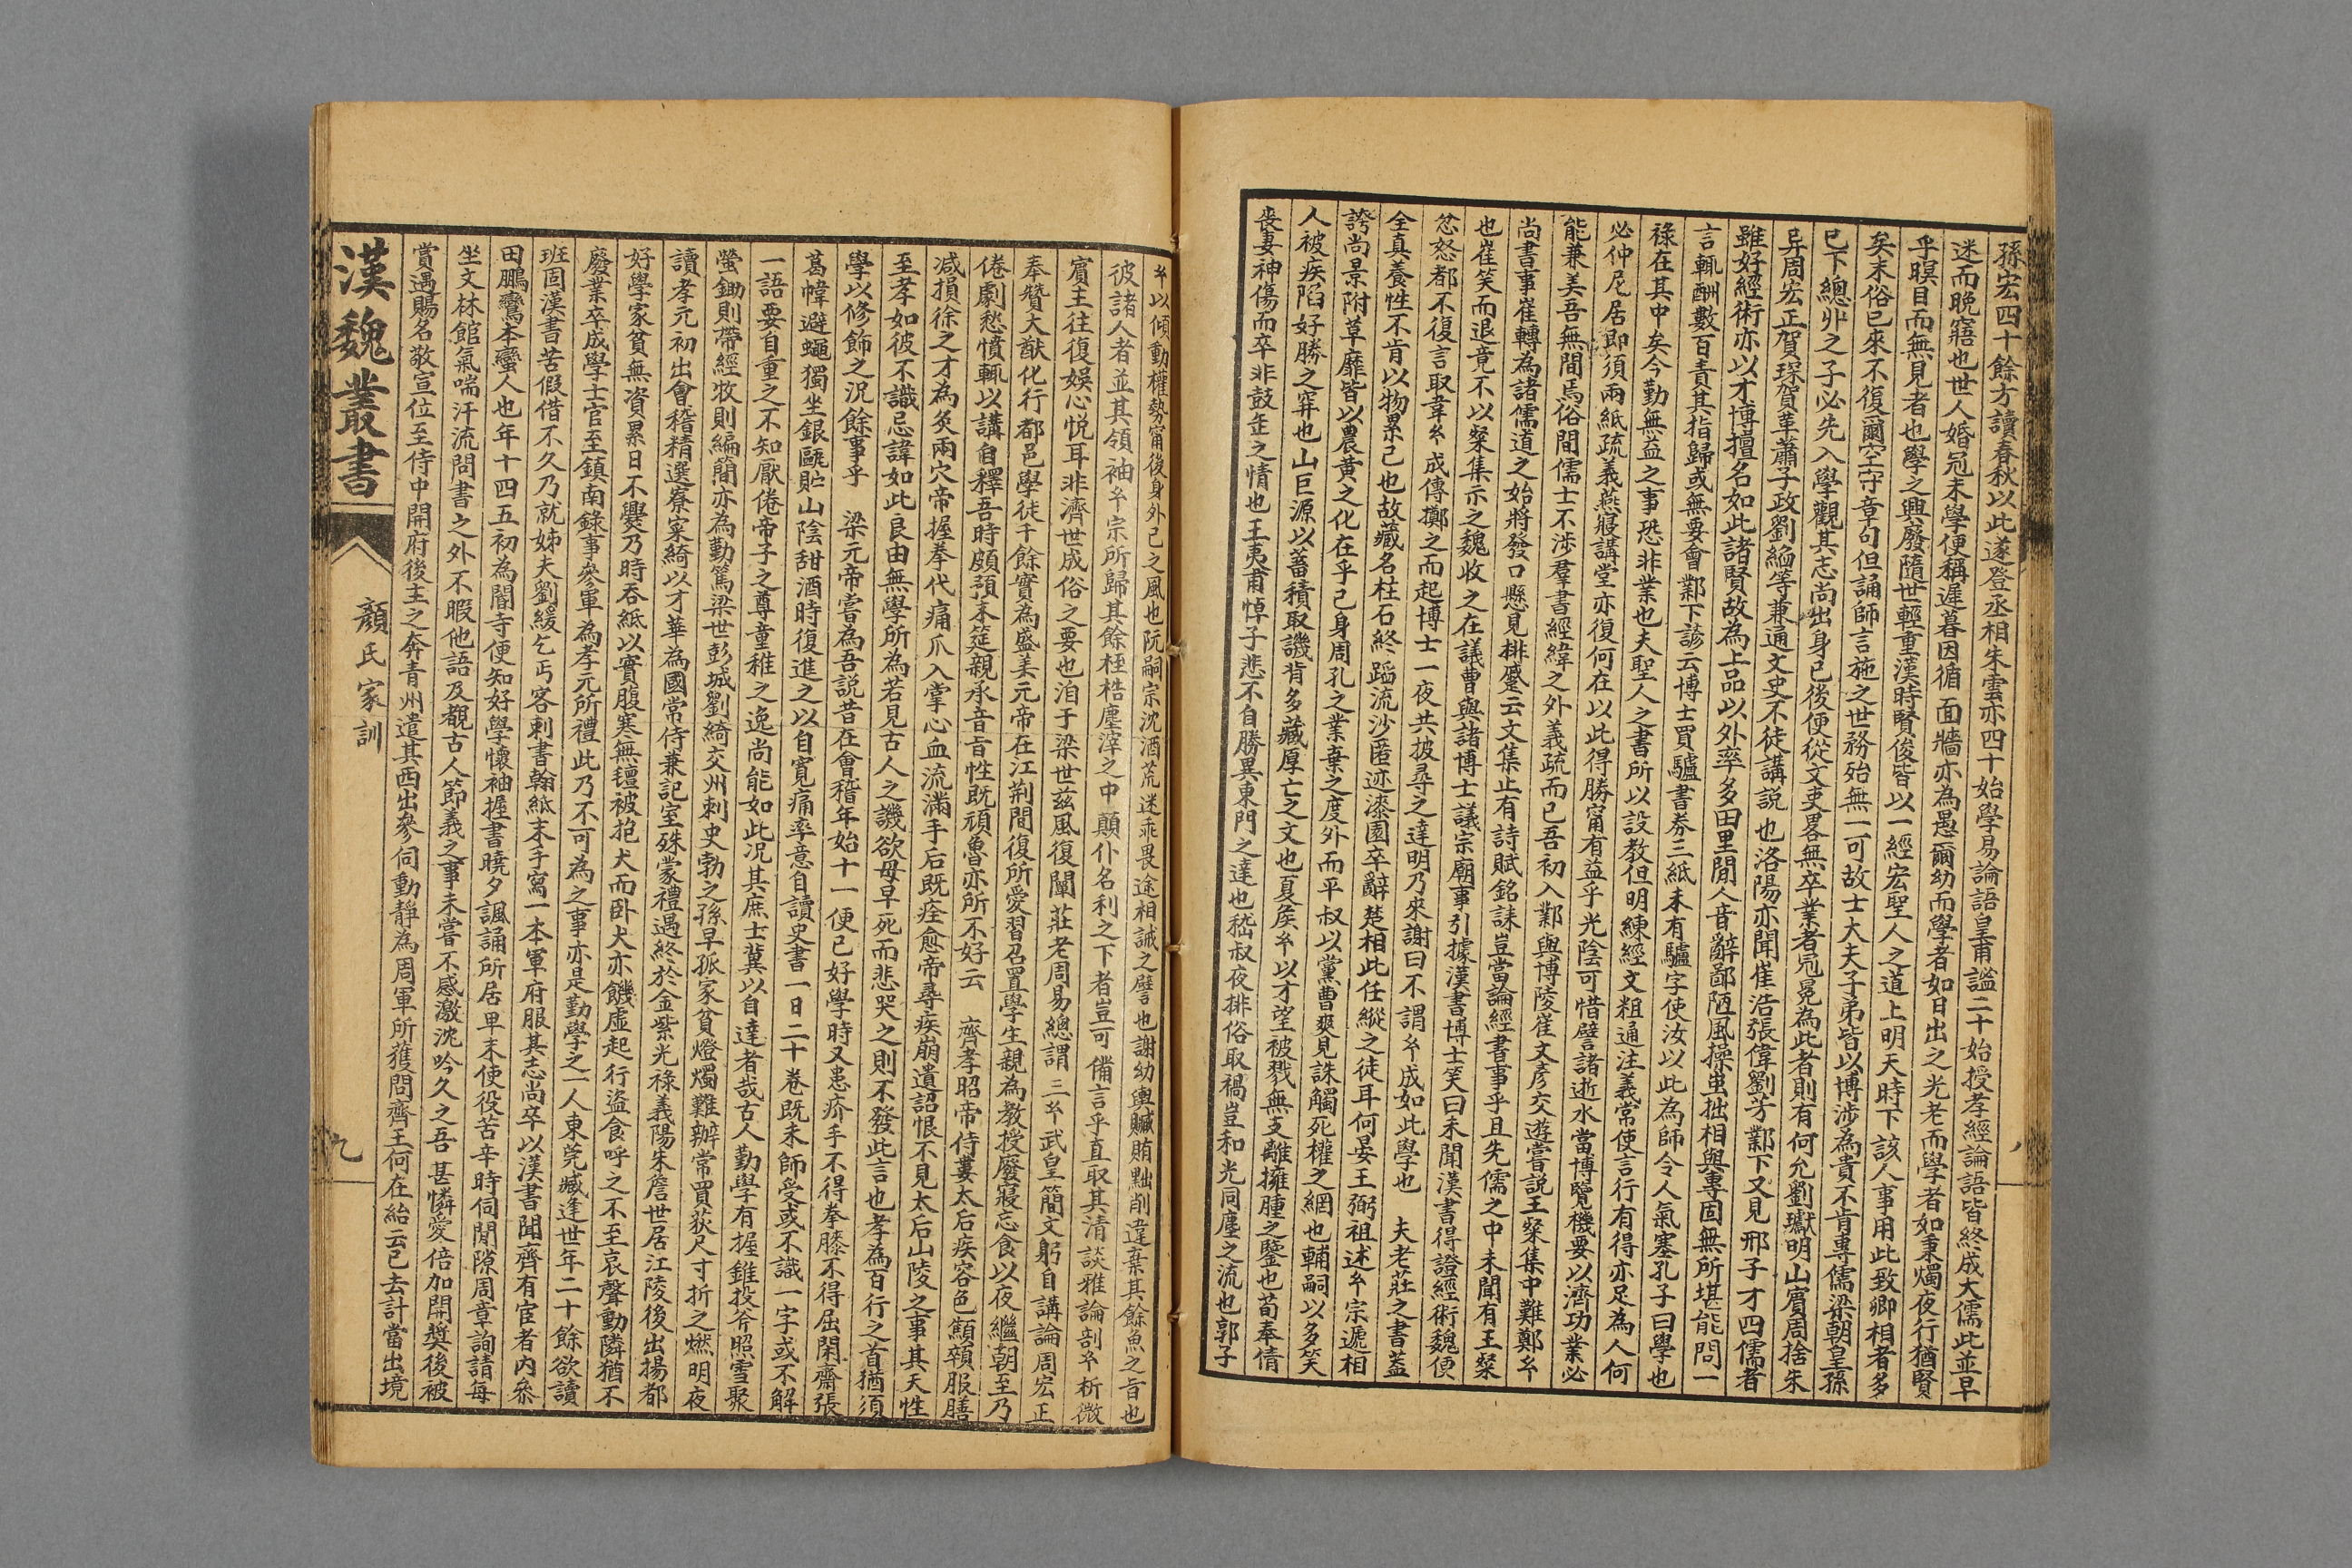 孫宏四十餘方讀春秋以此遂登丞相朱雲亦四十始學易論語皇甫謐二十始授孝經論語皆終成大儒此並早
迷而晚寤也世人婚冠未學便稱遲暮因循面牆亦為愚爾幼而學者如日出之光老而學者如秉燭夜行猶賢
乎瞑目而無見者也學之興廢隨世輕重漢時賢俊皆以一經宏聖人之道上明天時下該人事用此致卿相者多
矣末俗已來不復爾空守章句但誦師言施之世務殆無一可故士大夫子弟皆以博涉為貴不肯專儒梁朝皇孫
已下總丱之子必先入學觀其志尚出身已後便從文吏畧無卒業者冠冕為此者則有何允劉瓛明山賓周捨朱
异周宏正賀琛賀革蕭子政劉縚等兼通文史不徒講說也洛陽亦聞崔浩張偉劉芳鄴下又見邢子才四儒者
雖好經術亦以才博擅名如此諸賢故為上品以外率多田里閒人音辭鄙陋風操蚩拙相與專固無所堪能問一
言輒酬數百責其指歸或無要會鄴下諺云博士買驢書券三紙未有驢字使汝以此為師令人氣塞孔子曰學也
祿在其中矣今勤無益之事恐非業也夫聖人之書所以設教但明練經文粗通注義常使言行有得亦足為人何
必仲尼居即須兩紙疏義燕寢講堂亦復何在以此得勝甯有益乎光陰可惜譬諸逝水當博覽機要以濟功業必
能兼美吾無間焉俗間儒士不涉羣書經緯之外義疏而已吾初入鄴與博陵崔文彥交遊嘗說王粲集中難鄭𤣥
尚書事崔轉為諸儒道之始將發口懸見排蹙云文集止有詩賦銘誄豈當論經書事乎且先儒之中未聞有王粲
也崔笑而退竟不以粲集示之魏收之在議曹與諸博士議宗廟事引據漢書博士笑曰未聞漢書得證經術魏便
忿怒都不復言取韋𤣥成傳擲之而起博士一夜共披尋之達明乃來謝曰不謂𤣥成如此學也　夫老莊之書葢
全真養性不肯以物累己也故藏名柱石終蹈流沙匿迹漆園卒辭楚相此任縱之徒耳何晏王弼祖述𤣥宗遞相
誇尚景附草靡皆以農黄之化在乎己身周孔之業棄之度外而平叔以黨曹爽見誅觸死權之網也輔嗣以多笑
人被疾陷好勝之穽也山巨源以蓄積取譏背多藏厚亡之文也夏侯𤣥以才望被戮無支離擁腫之鑒也荀奉倩
喪妻神傷而卒非鼓缶之情也王夷甫悼子悲不自勝異東門之達也嵇叔夜排俗取禍豈和光同塵之流也郭子
八
𤣥以傾動權勢甯後身外已之風也阮嗣宗沈酒荒迷乖畏途相誡之譬也謝幼輿贓賄黜削違棄其餘魚之旨也
彼諸人者並其領袖𤣥宗所歸其餘桎梏塵滓之中顛仆名利之下者豈可備言乎直取其清談雅論剖𤣥析微
賓主往復娛心悅耳非濟世成俗之要也洎于梁世茲風復闡莊老周易總謂三𤣥武皇簡文躬自講論周宏正
奉贊大猷化行都邑學徒千餘實為盛美元帝在江荆間復所愛習召置學生親為教授廢寢忘食以夜繼朝至乃
倦劇愁憤輒以講自釋吾時頗預末筵親承音旨性既頑魯亦所不好云　齊孝昭帝侍婁太后疾容色顦顇服膳
減損徐之才為灸兩穴帝握拳代痛爪入掌心血流滿手后既痊愈帝尋疾崩遺詔恨不見太后山陵之事其天性
至孝如彼不識忌諱如此良由無學所為若見古人之譏欲母早死而悲哭之則不發此言也孝為百行之首猶須
學以修飾之況餘事乎　梁元帝嘗為吾說昔在會稽年始十一便已好學時又患疥手不得拳膝不得屈閑齋張
葛幃避蠅獨坐銀甌貯山陰甜酒時復進之以自寬痛率意自讀史書一日二十卷既未師受或不識一字或不解
一語要自重之不知厭倦帝子之尊童稚之逸尚能如此況其庶士冀以自達者哉古人勤學有握錐投斧照雪聚
螢鋤則帶經牧則編簡亦為勤篤梁世彭城劉綺交州刺史勃之孫早孤家貧燈燭難辦常買荻尺寸折之燃明夜
讀孝元初出會稽精選寮寀綺以才華為國常侍兼記室殊蒙禮遇終於金紫光祿義陽朱詹世居江陵後出揚都
好學家貧無資累日不爨乃時吞紙以實腹寒無氊被抱犬而卧犬亦饑虛起行盜食呼之不至哀聲動隣猶不
廢業卒成學士官至鎮南錄事參軍為孝元所禮此乃不可為之事亦是勤學之一人東莞臧逢世年二十餘欲讀
班固漢書苦假借不久乃就姊夫劉緩乞丐客刺書翰紙末手寫一本軍府服其志尚卒以漢書聞齊有宦者內參
田鵬鸞本蠻人也年十四五初為閽寺便知好學懷袖握書曉夕諷誦所居卑末使役苦辛時伺閒隙周章詢請每
坐文林館氣喘汗流問書之外不暇他語及覩古人節義之事未嘗不感激沈吟久之吾甚憐愛倍加開獎後被
賞遇賜名敬宣位至侍中開府後主之奔青州遣其西出參伺動靜為周軍所獲問齊王何在紿云已去計當出境
漢魏叢書
顏氏家訓
九